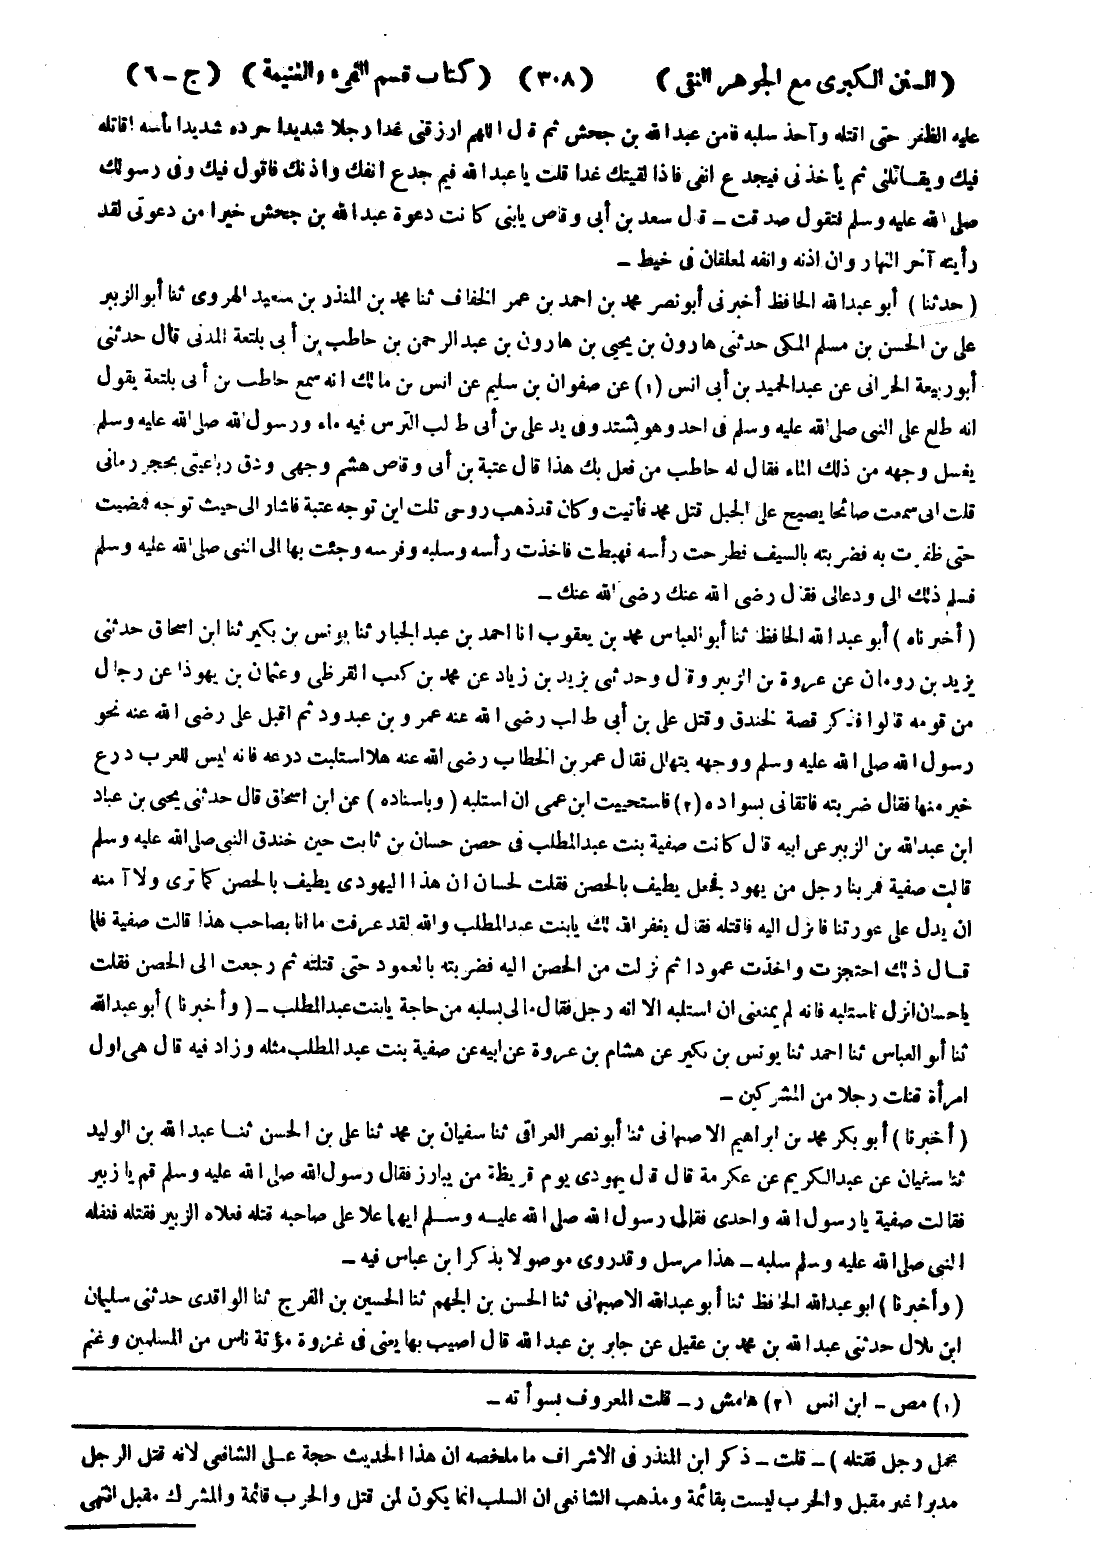 (السنن الكبرى مع الجوهر النقى) (٣٠٨) (كتاب قسم الفىء والغنيمة) (ج - ٦)
عليه الظفر حتى اقتله وآخذ سلبه فامن عبد الله بن جحش ثم قال اللهم ارزقنى غدا رجلا شديدا حرده شديدا بأسه اقاتله
فيك ويقاتلنى ثم يأخذنى فيجدع انفى فاذا لقيتك غدا قلت يا عبد الله فيم جدع انفك واذنك فاقول فيك وفى رسولك
صلى الله عليه وسلم فتقول صدقت - قال سعد بن أبى وقاص يابنى كانت دعوة عبد الله بن جحش خيرا من دعوتى لقد
رأيته آخر النهار وان اذنه وانفه لمعلقان فى خيط -
(حدثنا) أبو عبد الله الحافظ أخبرنى أبو نصر محمد بن احمد بن عمر الخفاف ثنا محمد بن المنذر بن سعيد الهروى ثنا أبو الزبير
على بن الحسن بن مسلم المكى حدثنى هارون بن يحيى بن هارون بن عبد الرحمن بن حاطب بن أبى بلتعة المدنى قال حدثنى
أبو ربيعة الحرانى عن عبد الحميد بن أبى انس (١) عن صفوان بن سليم عن انس بن مالك انه سمع حاطب بن أبى بلتعة يقول
انه طلع على النبى صلى الله عليه وسلم فى احد وهو يشتد وفى يد على بن أبى طالب الترس فيه ماء ورسول الله صلى الله عليه وسلم
يغسل وجهه من ذلك الماء فقال له حاطب من فعل بك هذا قال عتبة بن أبى وقاص هشم وجهى ودق رباعيتى بحجر رمانى
قلت انى سمعت صائحا يصيح على الجبل قتل محمد فأتيت وكان قد ذهب روحى قلت اين توجه عتبة فاشار الى حيث توجه فمضيت
حتى ظفرت به فضربته بالسيف فطرحت رأسه فهبطت فاخذت رأسه وسلبه وفرسه وجئت بها الى النبى صلى الله عليه وسلم
فسلم ذلك الى ودعالى فقال رضى الله عنك رضى الله عنك -
(أخبرناه) أبو عبد الله الحافظ ثنا أبو العباس محمد بن يعقوب انا احمد بن عبد الجبار ثنا يونس بن بكير ثنا ابن اسحاق حدثنى
يزيد بن رومان عن عروة بن الزبير وقال وحدثنى يزيد بن زياد عن محمد بن كعب القرظى وعثمان بن يهوذا عن رجال
من قومه قالوا فذكر قصة الخندق وقتل على بن أبى طالب رضى الله عنه عمرو بن عبدود ثم اقبل على رضى الله عنه نحو
رسول الله صلى الله عليه وسلم ووجهه يتهلل فقال عمر بن الخطاب رضى الله عنه هلا استلبت درعه فانه ليس للعرب درع
خير منها فقال ضربته فاتقانى بسواده (٢) فاستحييت ابن عمى ان استلبه (وباسناده) عن ابن اسحاق قال حدثنى يحيى بن عباد
ابن عبد الله بن الزبير عن ابيه قال كانت صفية بنت عبد المطلب فى حصن حسان بن ثابت حين خندق النبى صلى الله عليه وسلم
قالت صفية فمر بنا رجل من يهود فجعل يطيف بالحصن فقلت لحسان ان هذا اليهودى يطيف بالحصن كما ترى ولا آمنه
ان يدل على عورتنا فانزل اليه فاقتله فقال يغفر الله لك يابنت عبد المطلب والله لقد عرفت ما انا بصاحب هذا قالت صفية فلما
قال ذلك احتجزت واخذت عمودا ثم نزلت من الحصن اليه فضربته بالعمود حتى قتلته ثم رجعت الى الحصن فقلت
ياحسان انزل فاستلبه فانه لم يمنعنى ان استلبه الا انه رجل فقال مالى بسلبه من حاجة يابنت عبد المطلب - (وأخبرنا) أبو عبد الله
ثنا أبو العباس ثنا احمد ثنا يونس بن بكير عن هشام بن عروة عن ابيه عن صفية بنت عبد المطلب مثله وزاد فيه قال هى اول
امرأة قتلت رجلا من المشركين -
(أخبرنا) أبو بكر محمد بن ابراهيم الاصبهانى ثنا أبو نصر العراقى ثنا سفيان بن محمد ثنا على بن الحسن ثنا عبد الله بن الوليد
ثنا سفيان عن عبد الكريم عن عكرمة قال قال يهودى يوم قريظة من يبارز فقال رسول الله صلى الله عليه وسلم قم يا زبير
فقالت صفية يا رسول الله واحدى فقال رسول الله صلى الله عليه وسلم ايهما علا على صاحبه قتله فعلاه الزبير فقتله فنفله
النبى صلى الله عليه وسلم سلبه - هذا مرسل وقد روى موصولا بذكر ابن عباس فيه -
(وأخبرنا) ابو عبد الله الحافظ ثنا أبو عبد الله الاصبهانى ثنا الحسن بن الجهم ثنا الحسين بن الفرج ثنا الواقدى حدثنى سليمان
ابن بلال حدثنى عبد الله بن محمد بن عقيل عن جابر بن عبد الله قال اصيب بها يعنى فى غزوة مؤتة ناس من المسلمين وغنم
(١) مص - ابن انس (٢) هامش ر - قلت المعروف بسوأته -
محمل رجل فقتله) - قلت - ذكر ابن المنذر فى الاشراف ما ملخصه ان هذا الحديث حجة على الشافعى لانه قتل الرجل
مدبرا غير مقبل والحرب ليست بقائمة ومذهب الشافعى ان السلب انما يكون لمن قتل والحرب قائمة والمشرك مقبل انتهى